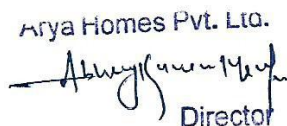 Arya Homes Pvt. Ltd.
Director